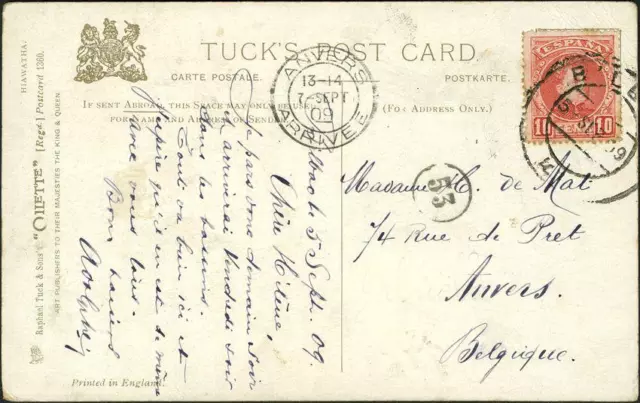 TUCK'S POST CARD.
CARTE POSTALE.
POSTKARTE.
IF SENT ABROAD, THIS SPACE MAY ONLY BE USED
FOR NAME AND ADDRESS OF SENDER.
(FOR ADDRESS ONLY.)
HIAWATHA.
Raphael Tuck & Sons' "OILETTE" [Regd.] Postcard 1360.
ART PUBLISHERS TO THEIR MAJESTIES THE KING & QUEEN
Printed in England.
ANVERS
13-14
7 SEPT
09
ARRIVEE
ESPAÑA
10 10
53
Bilbao le 5 Sept. 09.
Chère Hélène,
Je pars donc demain soir
et arriverai Vendredi soir
Tout va bien ici et
j'espère qu'il en est de même
avec vous tous.
Bons baisers
Adolphe
Madame H. de Mat
74 Rue de Pret
Anvers
Belgique.